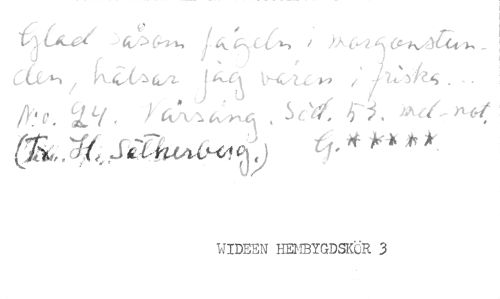 Glad såsom fågeln i morgonstun-
den, hälsar jag våren i friska...
No. 24. Vårsång. Sid. 53. md-not.
(Tx. H. Sätherberg.) G. *****
WIDEEN HEMBYGDSKÖR 3